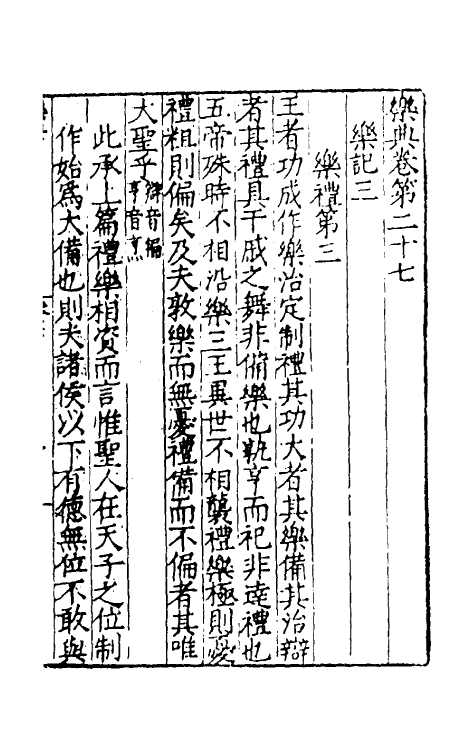 樂典卷第二十七
樂記三
樂禮第三
王者功成作樂治定制禮其功大者其樂備其治辯
者其禮具干戚之舞非備樂也孰亨而祀非達禮也
五帝殊時不相沿樂三王異世不相襲禮樂極則憂
禮粗則偏矣及夫敦樂而無憂禮備而不偏者其唯
大聖乎辯音徧亨音烹
此承上篇禮樂相資而言惟聖人在天子之位制
作始爲大備也則夫諸侯以下有德無位不敢與